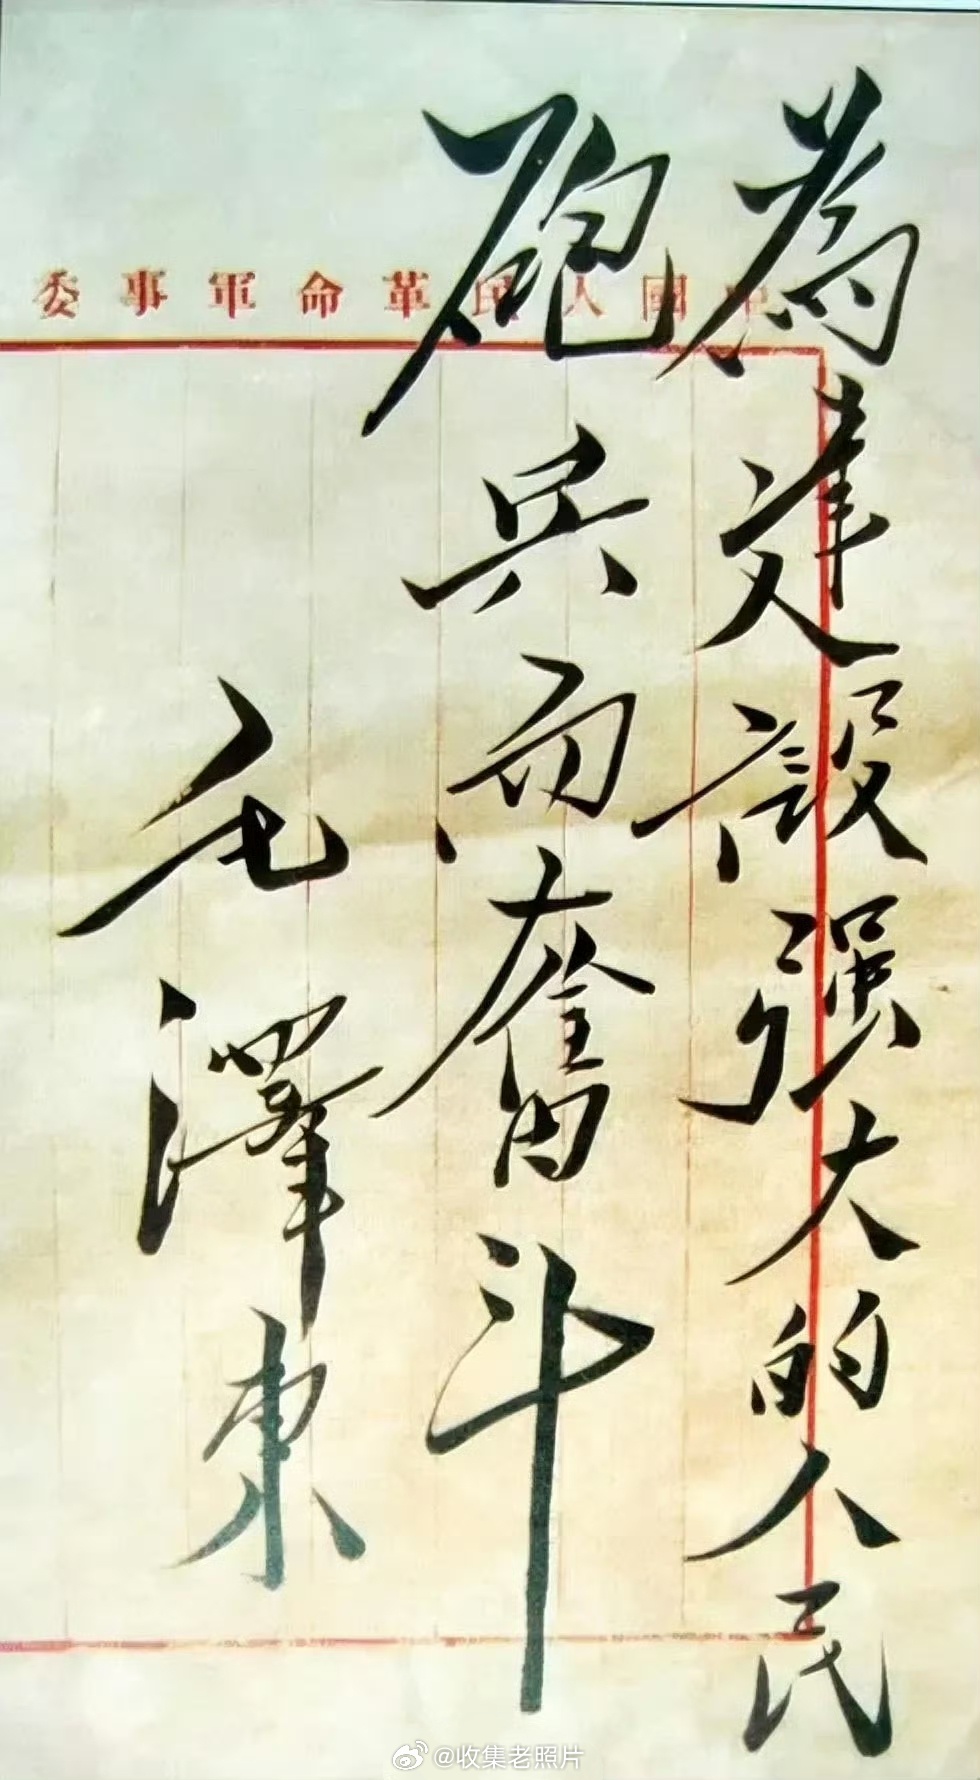 中國人民革命軍事委
為建設强大的人民
砲兵而奮斗
毛澤東
@收集老照片